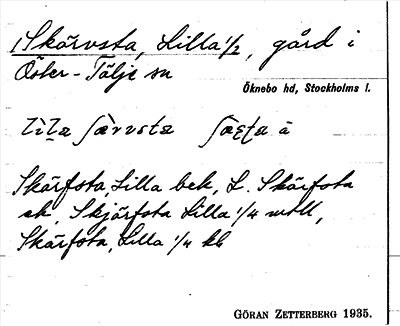 1 Skärvsta, Lilla 1/2, gård i
Öster-Tälje sn
Öknebo hd, Stockholms l.
Skärfsta, Lilla bek, L. Skärfsta
ek, Skjärfsta Lilla 1/4 mtll,
Skärfsta, Lilla 1/4 kb
GÖRAN ZETTERBERG 1935.